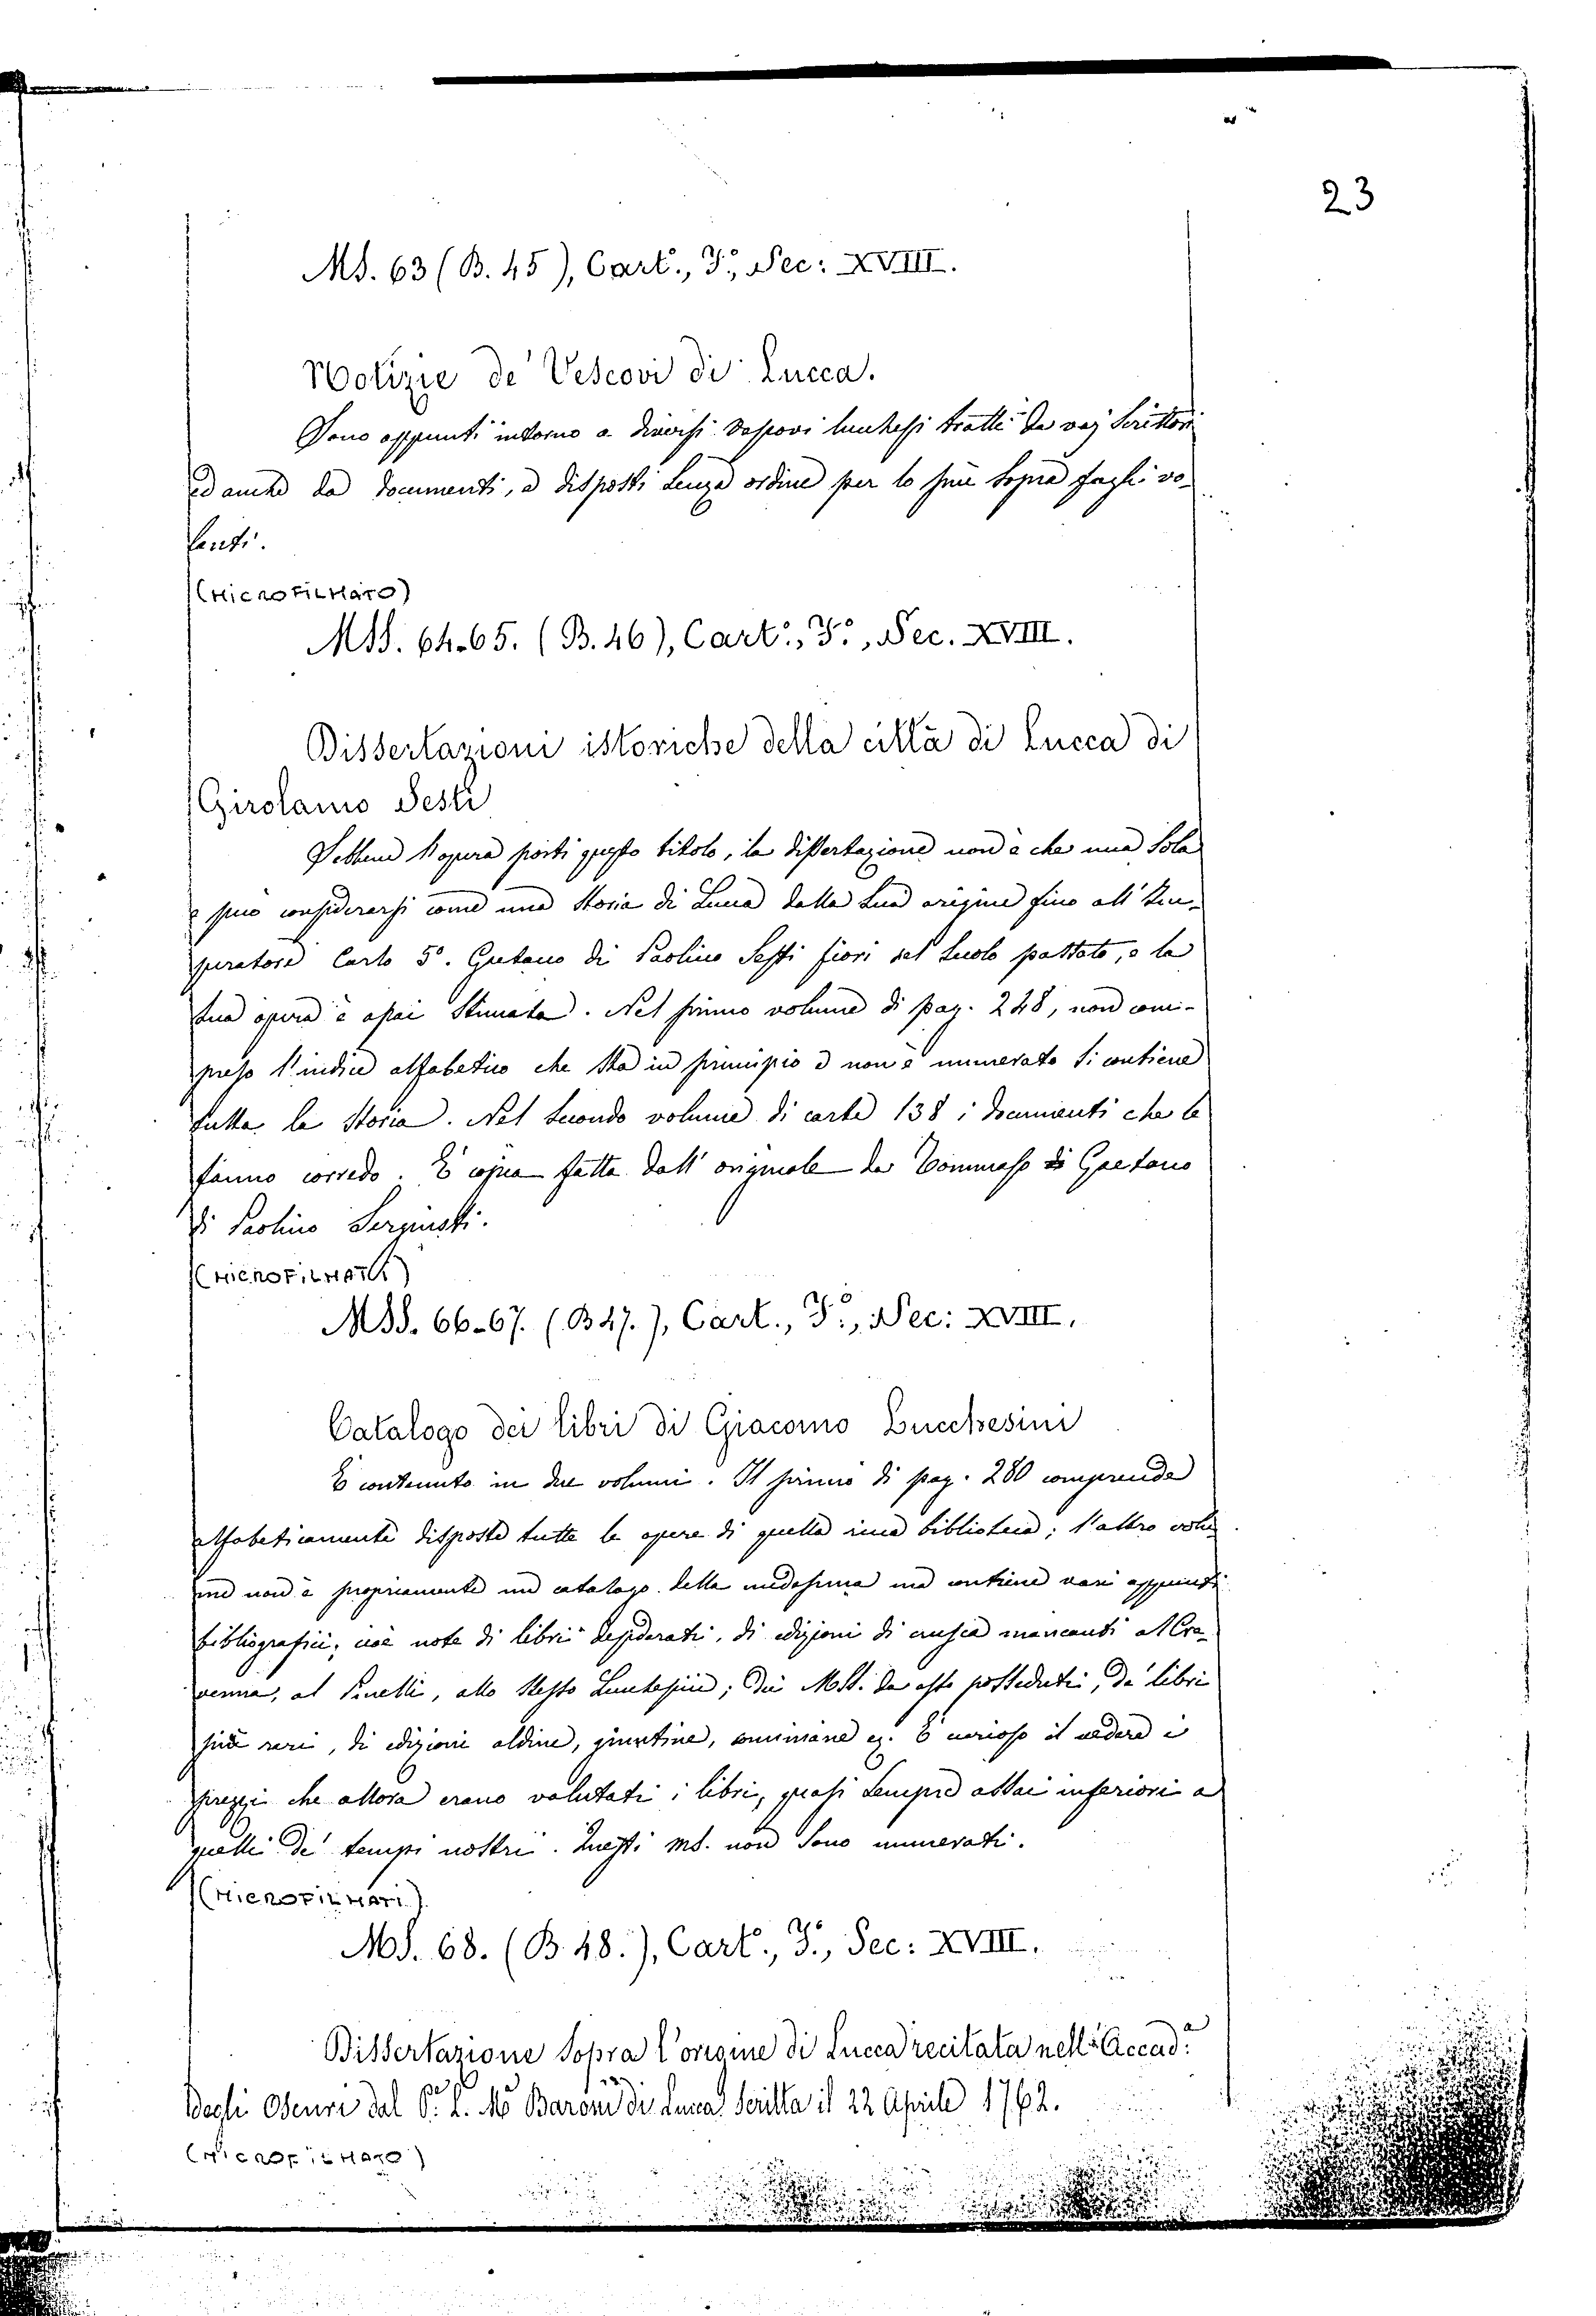 23
Ms. 63 (B. 45), Cart., F.º, Sec: XVIII.
Notizie de' Vescovi di Lucca.
Sono appunti intorno a diversi Vescovi lucchesi tratti da varj Scrittori
ed anche da documenti, e disposti senza ordine per lo più sopra fogli vo-
lanti.
(MICROFILMATO)
MSS. 64-65. (B. 46), Cart., F.º, Sec. XVIII.
Dissertazioni istoriche della città di Lucca di
Girolamo Sesti
Sebbene l'opera porti questo titolo, la dissertazione non è che una sola
e può considerarsi come una storia di Lucca dalla sua origine fino all'Im-
peratore Carlo 5º. Gaetano di Paolino Sesti fiorì nel secolo passato, e la
sua opera è assai stimata. Nel primo volume di pag. 248, non com-
preso l'indice alfabetico che sta in principio e non è numerato si contiene
tutta la storia. Nel secondo volume di carte 138 i documenti che le
fanno corredo. È copia fatta dall'originale da Tommaso di Gaetano
di Paolino Sergiusti.
(MICROFILMATI)
MSS. 66-67. (B 47.), Cart., F.º, Sec: XVIII.
Catalogo dei libri di Giacomo Lucchesini
È contenuto in due volumi. Il primo di pag. 280 comprende
alfabeticamente disposte tutte le opere di quella ricca biblioteca; l'altro volu
me non è propriamente un catalogo della medesima ma contiene varii appunti
bibliografici; cioè note di libri desiderati, di edizioni di crusca mancanti al Cra-
venna, al Pinelli, allo stesso Lucchesini; dei MSS. da esso posseduti, de' libri
più rari, di edizioni aldine, giuntine, cominiane ec. È curioso il vedere i
prezzi che allora erano valutati i libri, quasi sempre assai inferiori a
quelli de' tempi nostri. Questi ms. non sono numerati.
(MICROFILMATI)
MS. 68. (B. 48.), Cart., F.º, Sec: XVIII.
Dissertazione sopra l'origine di Lucca recitata nell'Accad.ª
degli Oscuri dal P. L. Mº Baroni di Lucca scritta il 22 Aprile 1762.
(MICROFILMATO)